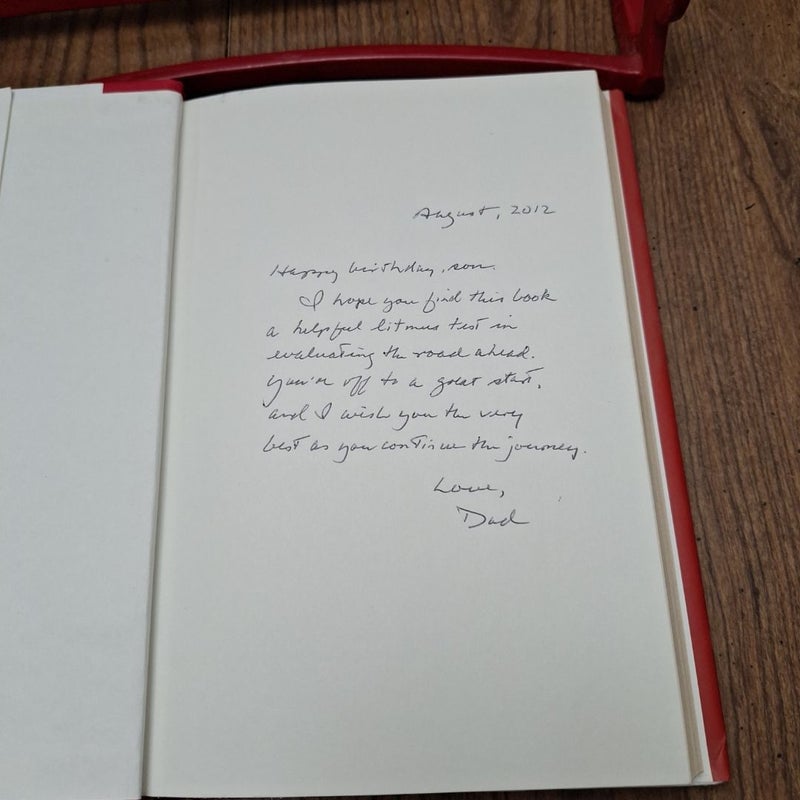 August, 2012
Happy birthday, son.
I hope you find this book
a helpful litmus test in
evaluating the road ahead.
You're off to a great start,
and I wish you the very
best as you continue the journey.
Love,
Dad